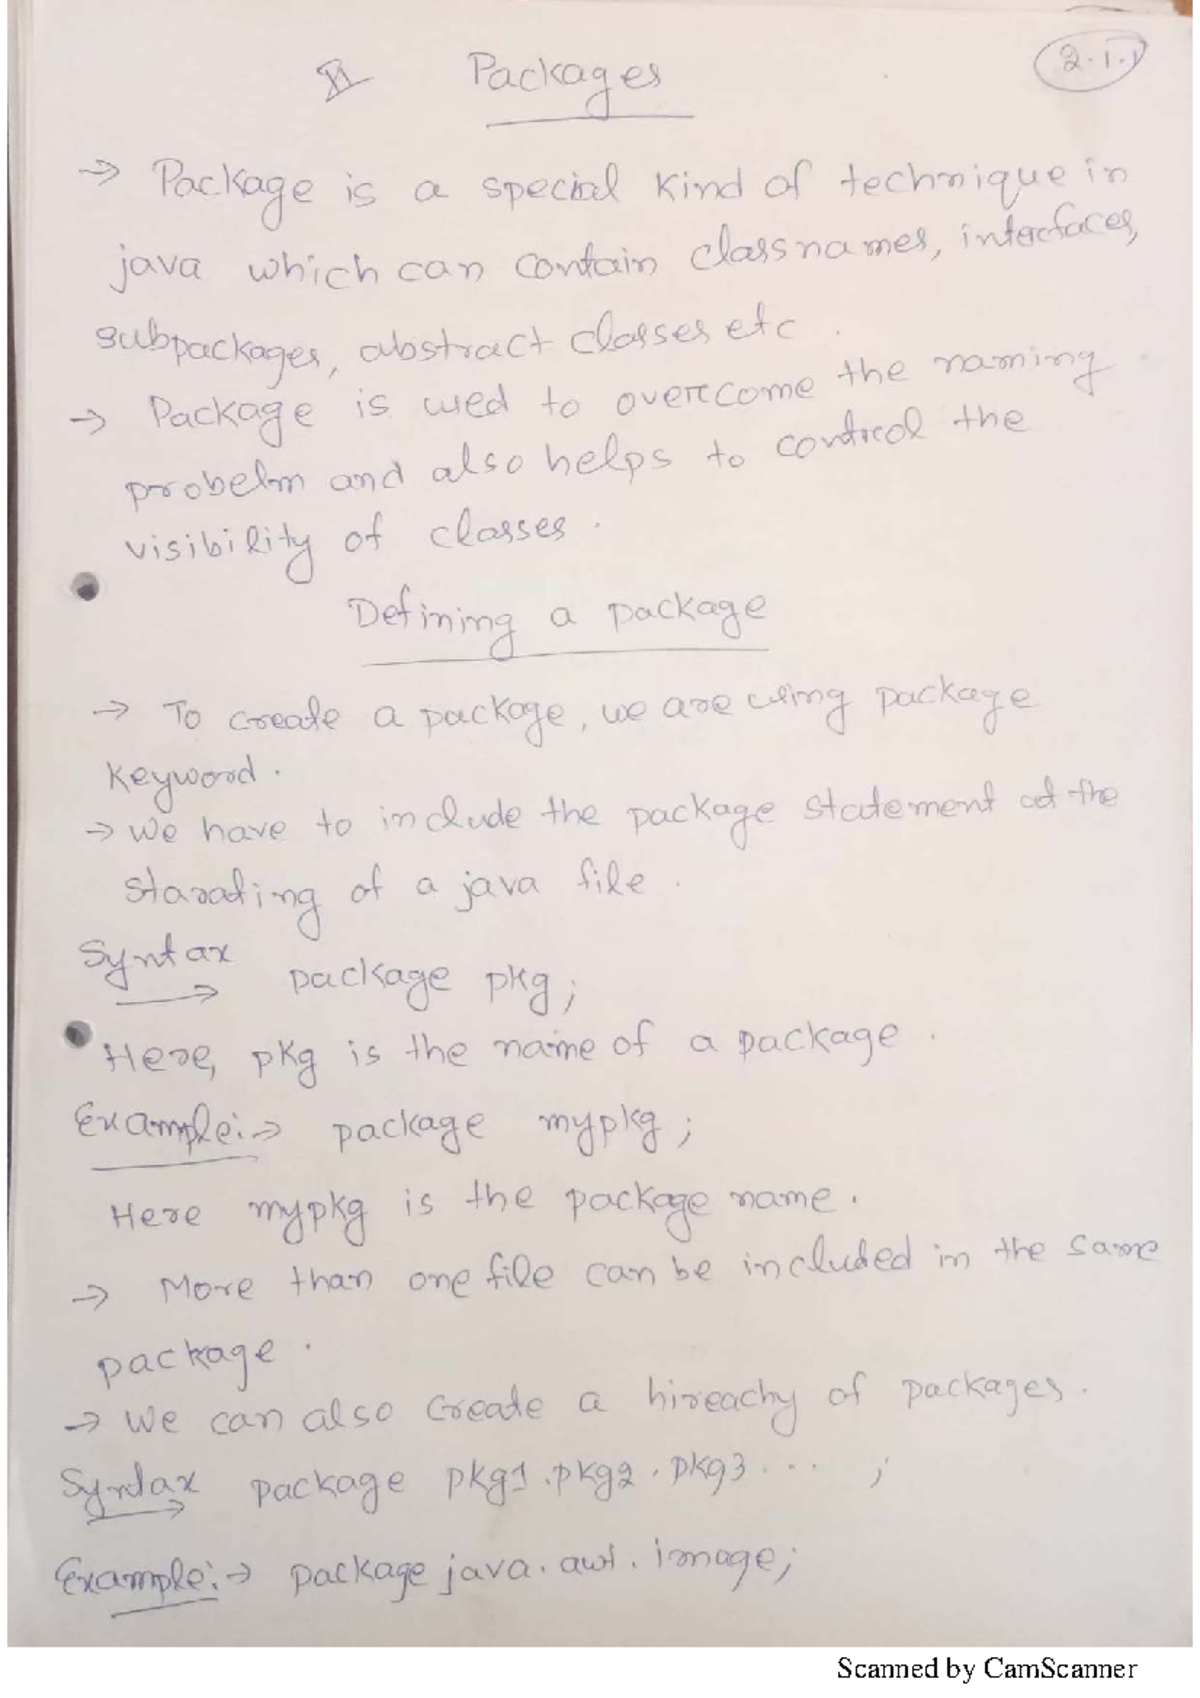 II Packages 2.1.1
→ Package is a special kind of technique in
java which can contain classnames, interfaces,
subpackages, abstract classes etc.
→ Package is used to overcome the naming
probelm and also helps to control the
visibility of classes.
Defining a package
→ To create a package, we are using package
keyword.
→ we have to include the package statement at the
starating of a java file.
Syntax package pkg;
Here, pkg is the name of a package.
Example:→ package mypkg;
Here mypkg is the package name.
→ More than one file can be included in the same
package.
→ we can also create a hireachy of packages.
Syntax package pkg1.pkg2.pkg3... ;
Example:→ package java.awt.image;
Scanned by CamScanner